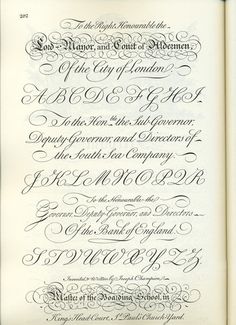 207
To the Right Honourable the
Lord-Mayor, and Court of Aldermen,
Of the City of London.
A B C D E F G H I.
To the Hon.ble the Sub-Governor,
Deputy-Governor, and Directors of
the South Sea Company.
J K L M N O P Q R
To the Honourable the
Governor, Deputy-Governor, and Directors
Of the Bank of England.
S T V U W X Y Z Z
Invented & Written by Joseph Champion,
Master of the Boarding School, in
King's Head Court, St. Paul's Church Yard.